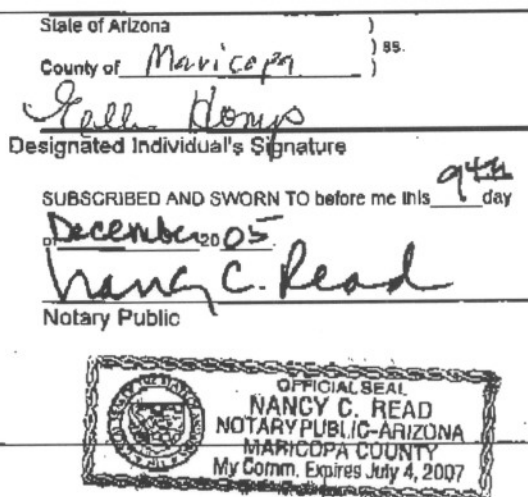 State of Arizona )
) ss.
County of Maricopa )
Designated Individual's Signature
SUBSCRIBED AND SWORN TO before me this 9th day
of December 20 05.
Nancy C. Read
Notary Public
OFFICIAL SEAL
NANCY C. READ
NOTARY PUBLIC-ARIZONA
MARICOPA COUNTY
My Comm. Expires July 4, 2007